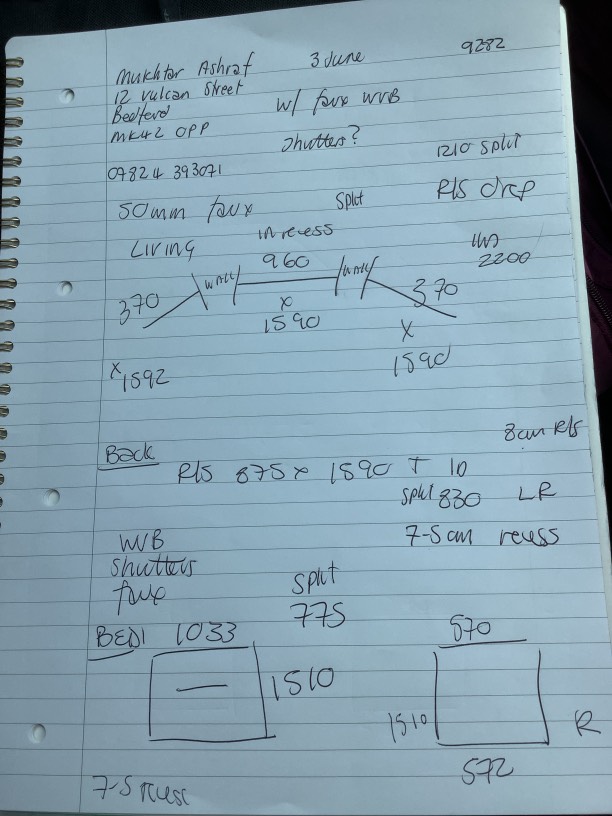 Mukhtar Ashraf 3 June 9282
12 Vulcan Street
Bedford w/ faux WVB
MK42 0PP shutters?
07824 393071 1210 split
50mm faux split R/S drop
Living in recess
960 2200
370 WALL WALL 370
x
1590 x
x1592 1590
8cm R/S
Back
R/S 875 x 1590 T 10
split 830 LR
WVB 7-5 cm recess
shutters
faux split
775
BED1 1033 570
1510
1510 R
572
7-5 recess